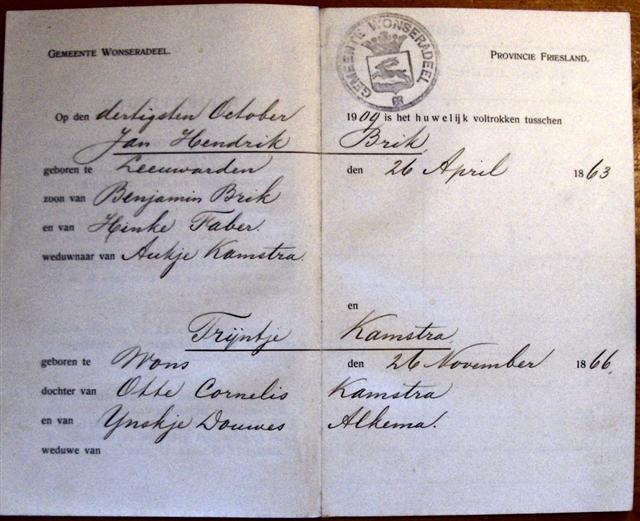 GEMEENTE WONSERADEEL.
GEMEENTE WONSERADEEL
PROVINCIE FRIESLAND.
Op den dertigsten October 1909 is het huwelijk voltrokken tusschen
Jan Hendrik Brik
geboren te Leeuwarden den 26 April 1863
zoon van Benjamin Brik
en van Hinke Faber.
weduwnaar van Aukje Kamstra.
en
Trijntje Kamstra
geboren te Wons den 26 November 1866.
dochter van Otte Cornelis Kamstra
en van Ynskje Douwes Alkema.
weduwe van